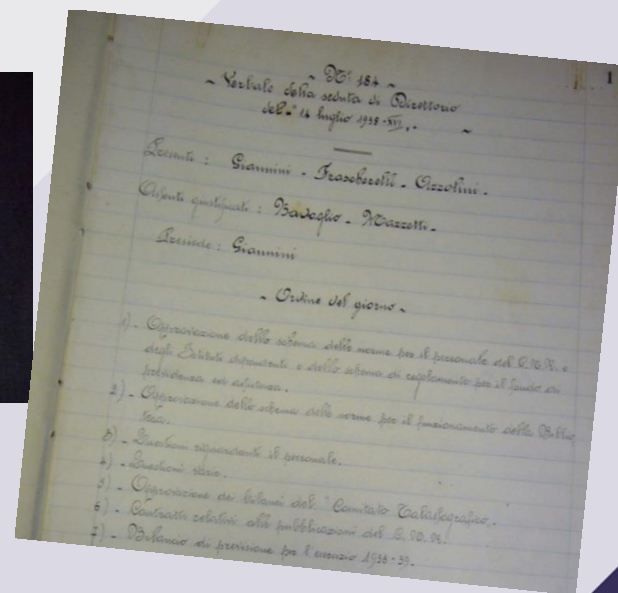 1
~ N° 184 ~
~ Verbale della seduta di Direttorio
del 14 luglio 1938-XVI. ~
Presenti : Giannini - Frascherelli - Azzolini.
Assenti giustificati : Bavaglio - Mazzetti.
Presiede : Giannini
~ Ordine del giorno ~
1) - Approvazione dello schema delle norme per il personale del C.N.R. e
degli Istituti dipendenti e dello schema di regolamento per il fondo di
previdenza ed assistenza.
2) - Approvazione dello schema delle norme per il funzionamento della Biblio
teca.
3) - Questioni riguardanti il personale.
4) - Questioni varie.
5) - Approvazione dei bilanci del "Comitato Talassografico".
6) - Contratti relativi alle pubblicazioni del C.N.R.
7) - Bilancio di previsione per l'esercizio 1938-39.